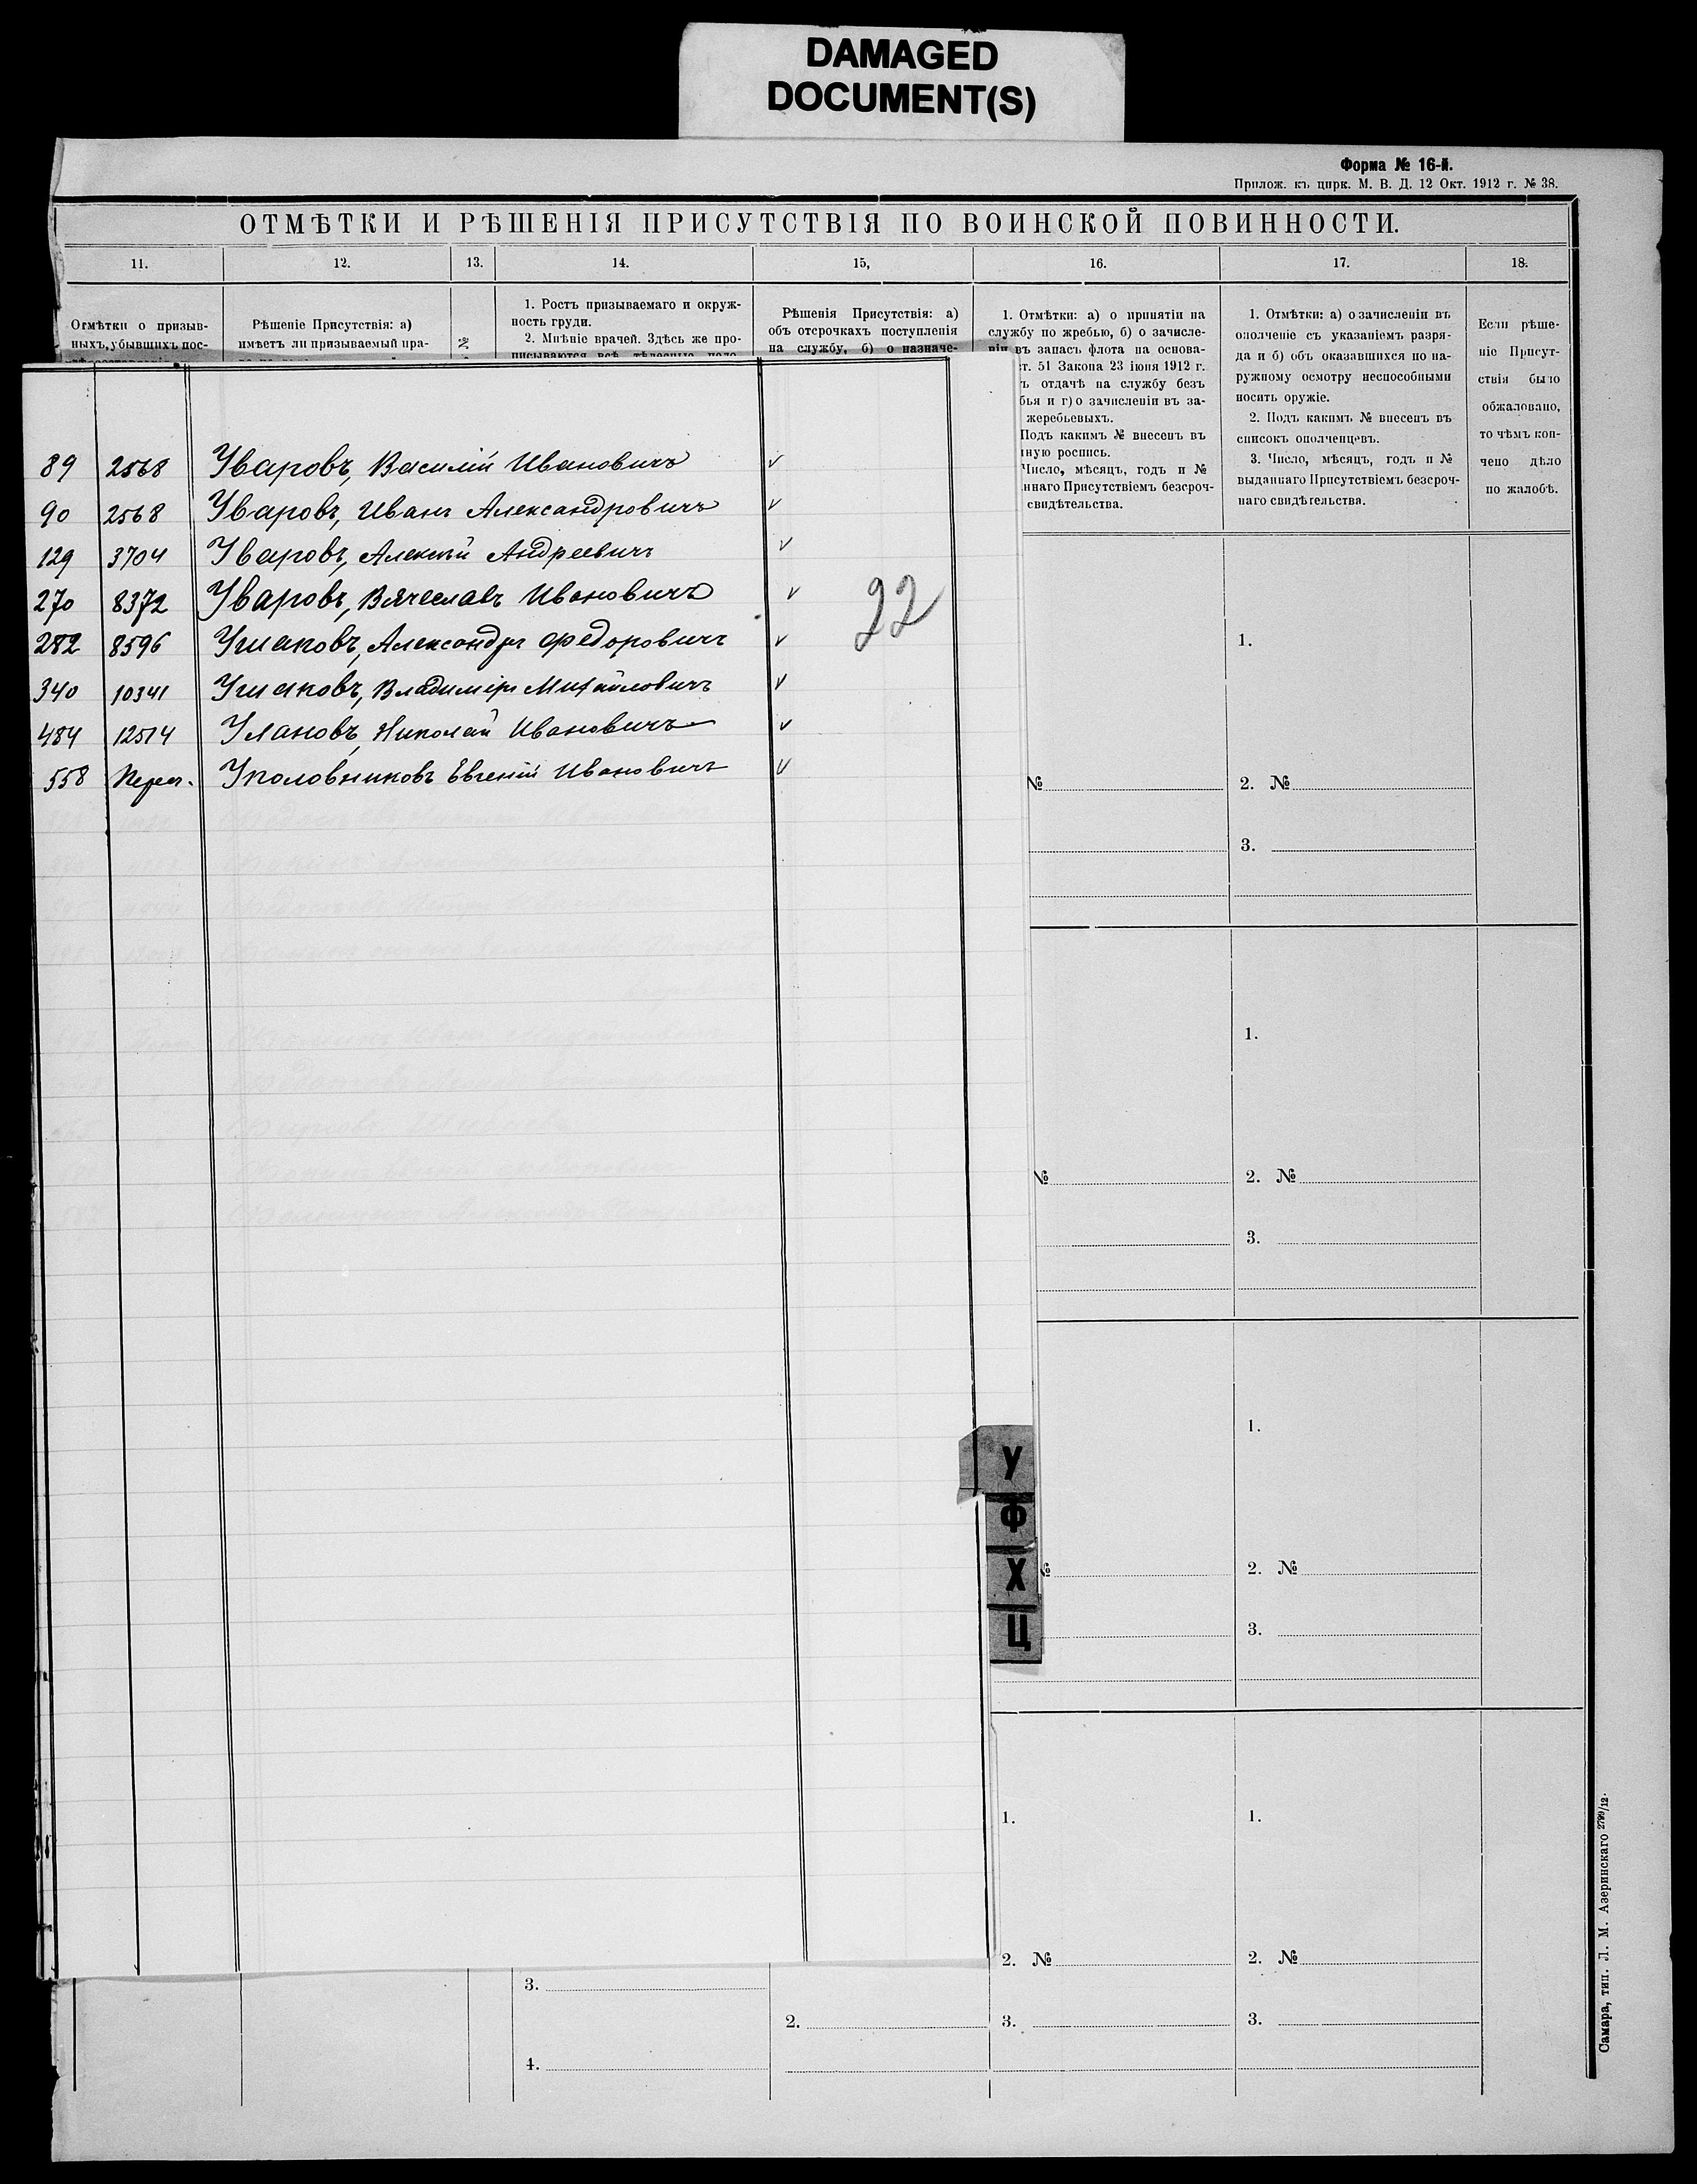 DAMAGED
DOCUMENT(S)
Форма № 16-й.
Прилож. къ цирк. М. В. Д. 12 Окт. 1912 г. № 38.
ОТМѢТКИ И РѢШЕНІЯ ПРИСУТСТВІЯ ПО ВОИНСКОЙ ПОВИННОСТИ.
11. 12. 13. 14. 15, 16. 17. 18.
Отмѣтки о призыв-
ныхъ, убывшихъ пос-
Рѣшеніе Присутствія: а)
имѣетъ ли призываемый пра-
1. Ростъ призываемаго и окруж-
ность груди.
2. Мнѣніе врачей. Здѣсь же про-
писываются всѣ тѣлесные недо-
Рѣшенія Присутствія: а)
объ отсрочкахъ поступленія
на службу, б) о назначе-
1. Отмѣтки: а) о принятіи на
службу по жребію, б) о зачисле-
ніи въ запасъ флота на основа-
т. 51 Закона 23 іюня 1912 г.
ъ отдачѣ на службу безъ
бья и г) о зачисленіи въ за-
жеребьевыхъ.
Подъ какимъ № внесенъ въ
ную роспись.
Число, мѣсяцъ, годъ и №
ннаго Присутствіемъ безсроч-
свидѣтельства.
1. Отмѣтки: а) о зачисленіи въ
ополченіе съ указаніемъ разря-
да и б) объ оказавшихся по на-
ружному осмотру неспособными
носить оружіе.
2. Подъ какимъ № внесенъ въ
списокъ ополченцевъ.
3. Число, мѣсяцъ, годъ и №
выданнаго Присутствіемъ безсроч-
наго свидѣтельства.
Если рѣше-
ніе Присут-
ствія было
обжаловано,
то чѣмъ кон-
чено дѣло
по жалобѣ.
89 2568 Уваровъ, Василій Ивановичъ v
90 2568 Уваровъ, Иванъ Александровичъ v
129 3704 Уваровъ, Алексѣй Андреевичъ v
270 8372 Уваровъ, Вячеславъ Ивановичъ v 22
282 8596 Ушаковъ, Александръ Федоровичъ v
340 10341 Ушаковъ, Владиміръ Михайловичъ v
484 12514 Улановъ, Николай Ивановичъ v
558 Переч. Уполовниковъ Евгеній Ивановичъ v
1.
№ 2. №
3.
1.
№ 2. №
3.
У
Ф
Х
Ц
1.
№ 2. №
3.
1. 1.
2. № 2. №
3. 2. 3. 3.
4.
Самара, тип. Л. М. Азеринскаго 2799/12.